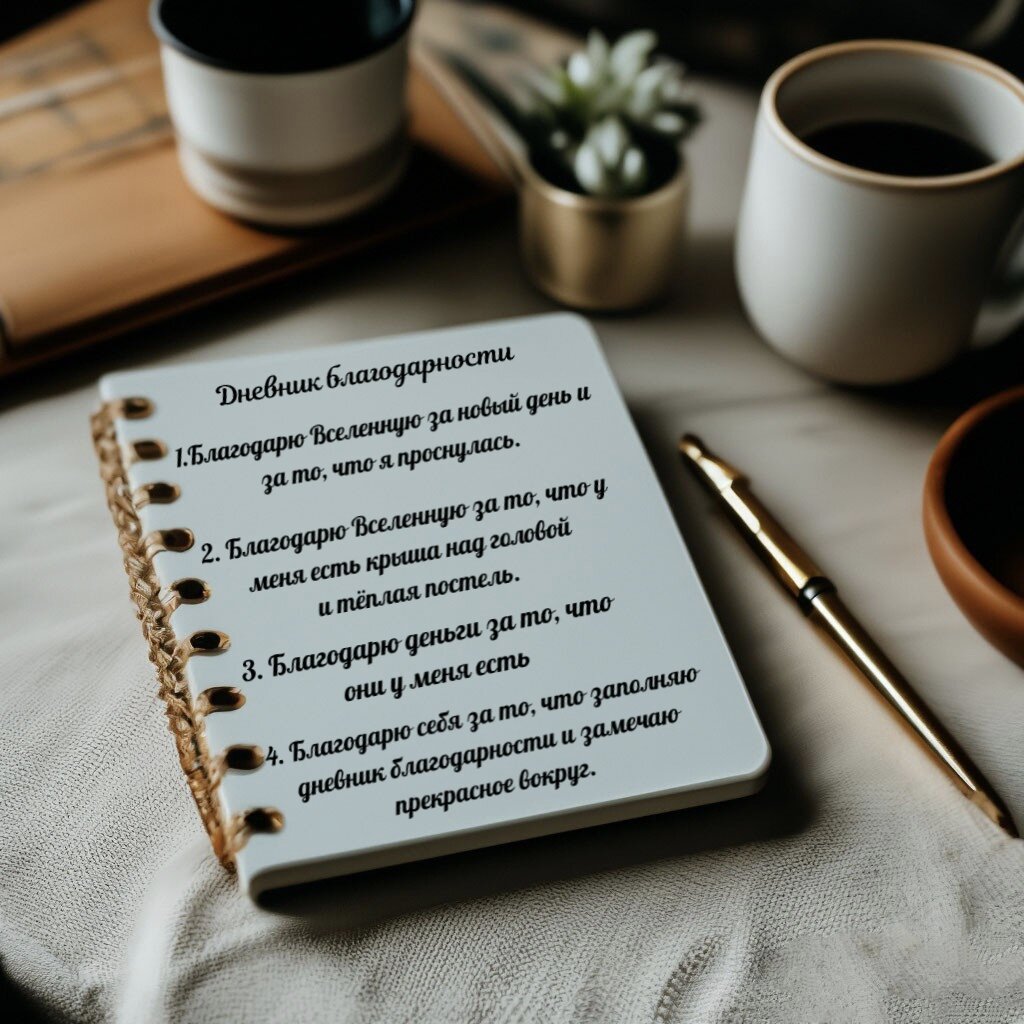 Дневник благодарности
1.Благодарю Вселенную за новый день и
за то, что я проснулась.
2. Благодарю Вселенную за то, что у
меня есть крыша над головой
и тёплая постель.
3. Благодарю деньги за то, что
они у меня есть
4. Благодарю себя за то, что заполняю
дневник благодарности и замечаю
прекрасное вокруг.